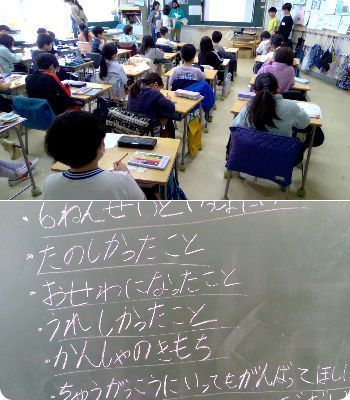 ・6ねんせいと
・たのしかったこと
・おせわになったこと
・うれしかったこと
・かんしゃのきもち
・ちゅうがっこうにいってもがんばってほし